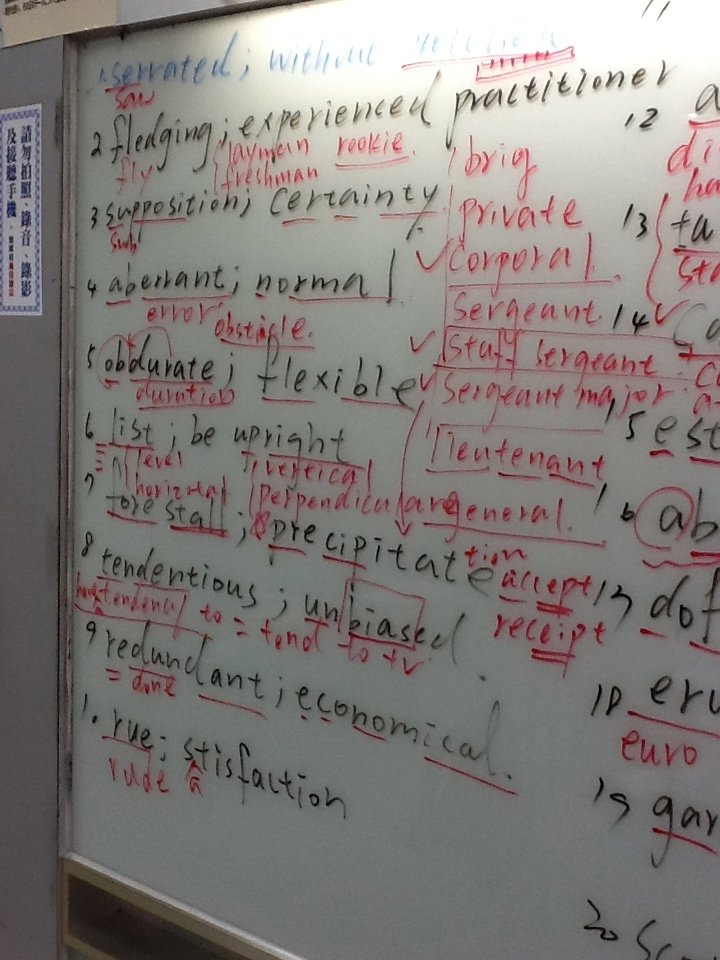 serrated; without
saw
2 fledging; experienced practitioner
fly layman rookie.
freshman
3 supposition; certainty
sub
4 aberrant; normal
error obstacle.
5 obdurate; flexible
duration
6 list; be upright
level vertical
horizotal perpendicular
7 forestall; precipitate
tion
8 tendentious; unbiased.
tendency to = tend to +v.
9 redundant; economical.
= done
10 rue; stisfaction
rude a
brig
private
corporal
sergeant
staff sergeant
sergeant major
lieutenant
general.
accept
receipt
11
12 a
di
ha
13 ta
sta
14 Ca
15 est
16 ab
17 dof
18 eru
euro
19 gar
20 Sc
請勿拍照、錄音、錄影
及接聽手機。